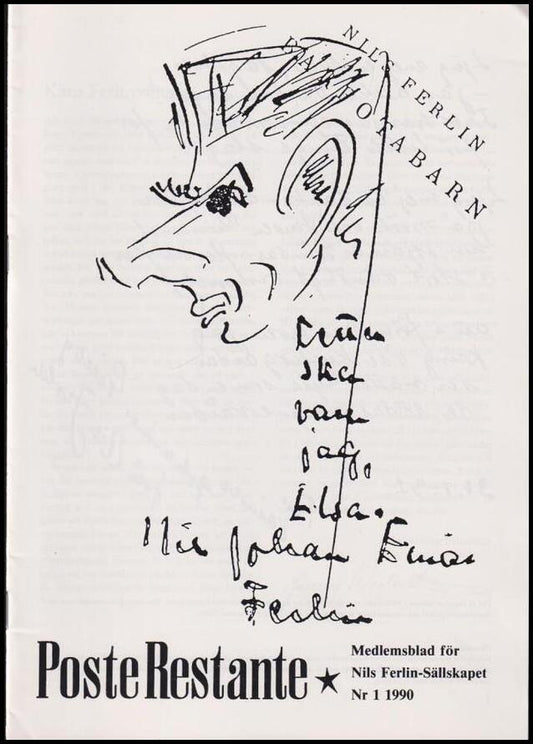 NILS FERLIN
BARFOTABARN
Detta
ska
vara
jag,
Elsa.
Nils Johan Einar
Ferlin
Poste Restante ★
Medlemsblad för
Nils Ferlin-Sällskapet
Nr 1 1990